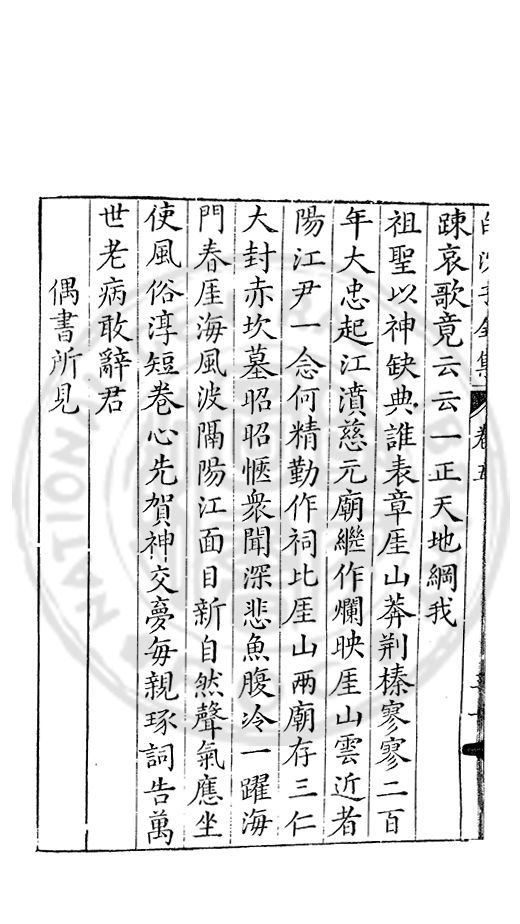 白沙子全集 卷五
踈哀歌竟云云一正天地綱我
祖聖以神缺典誰表章厓山莽荆榛寥寥二百
年大忠起江濆慈元廟繼作爛映厓山雲近者
陽江尹一念何精勤作祠比厓山兩廟存三仁
大封赤坎墓昭昭愜衆聞深悲魚腹冷一躍海
門春厓海風波隔陽江面目新自然聲氣應坐
使風俗淳短卷心先賀神交夢每親琢詞告萬
世老病敢辭君
偶書所見
NATIONAL